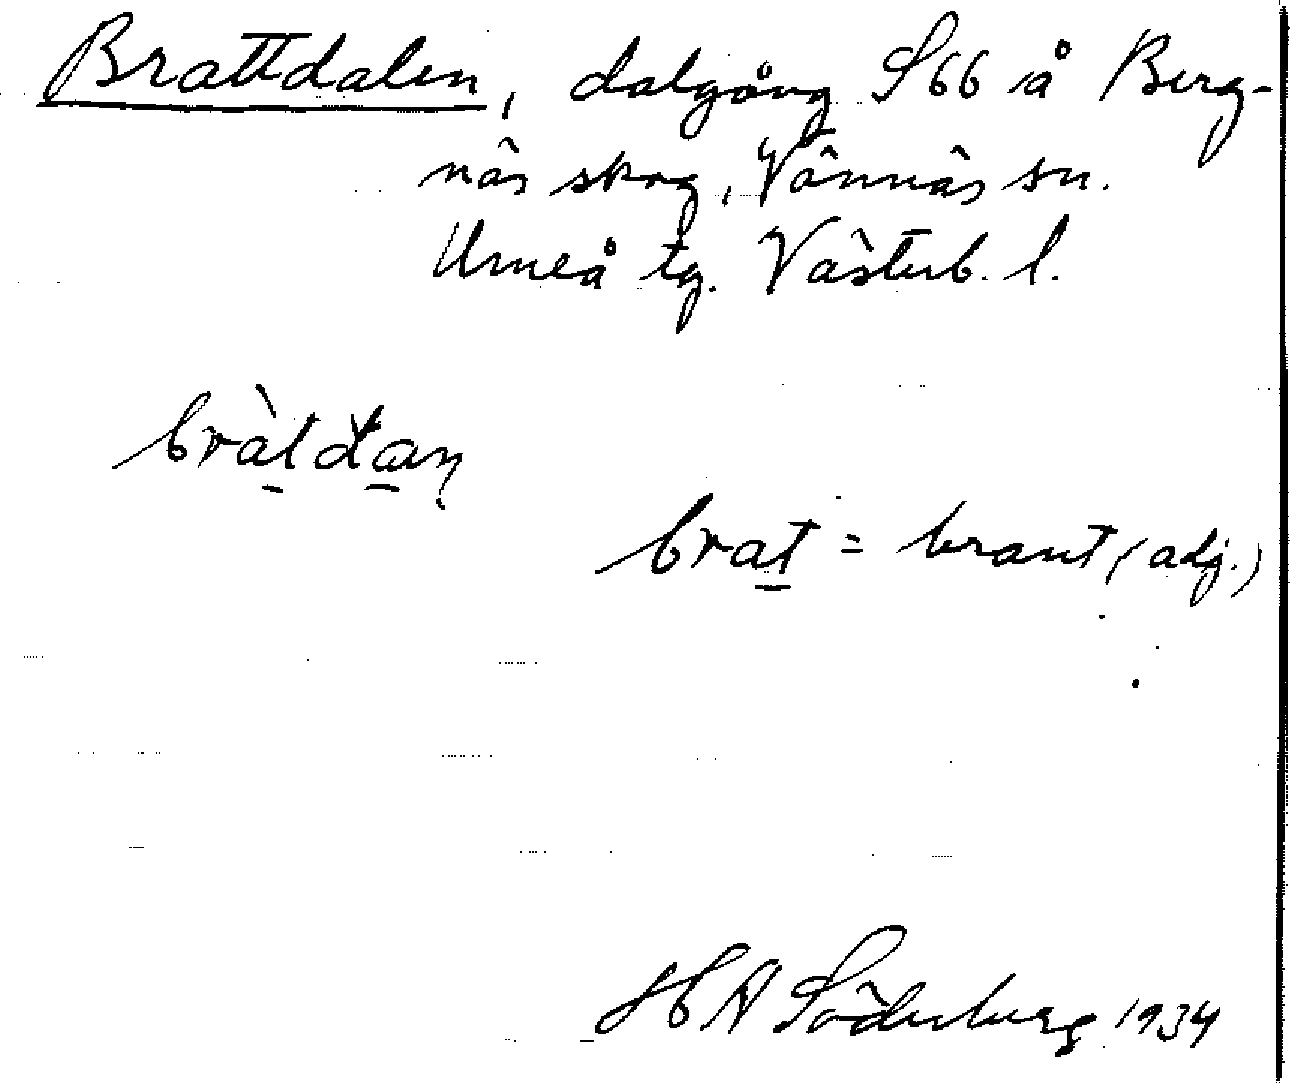 Brattdalen, dalgång S66 å Berg-
näs skog, Vännäs sn.
Umeå tg. Västerb. l.
bràt
brat = brant (adj.)
H A Söderberg 1934